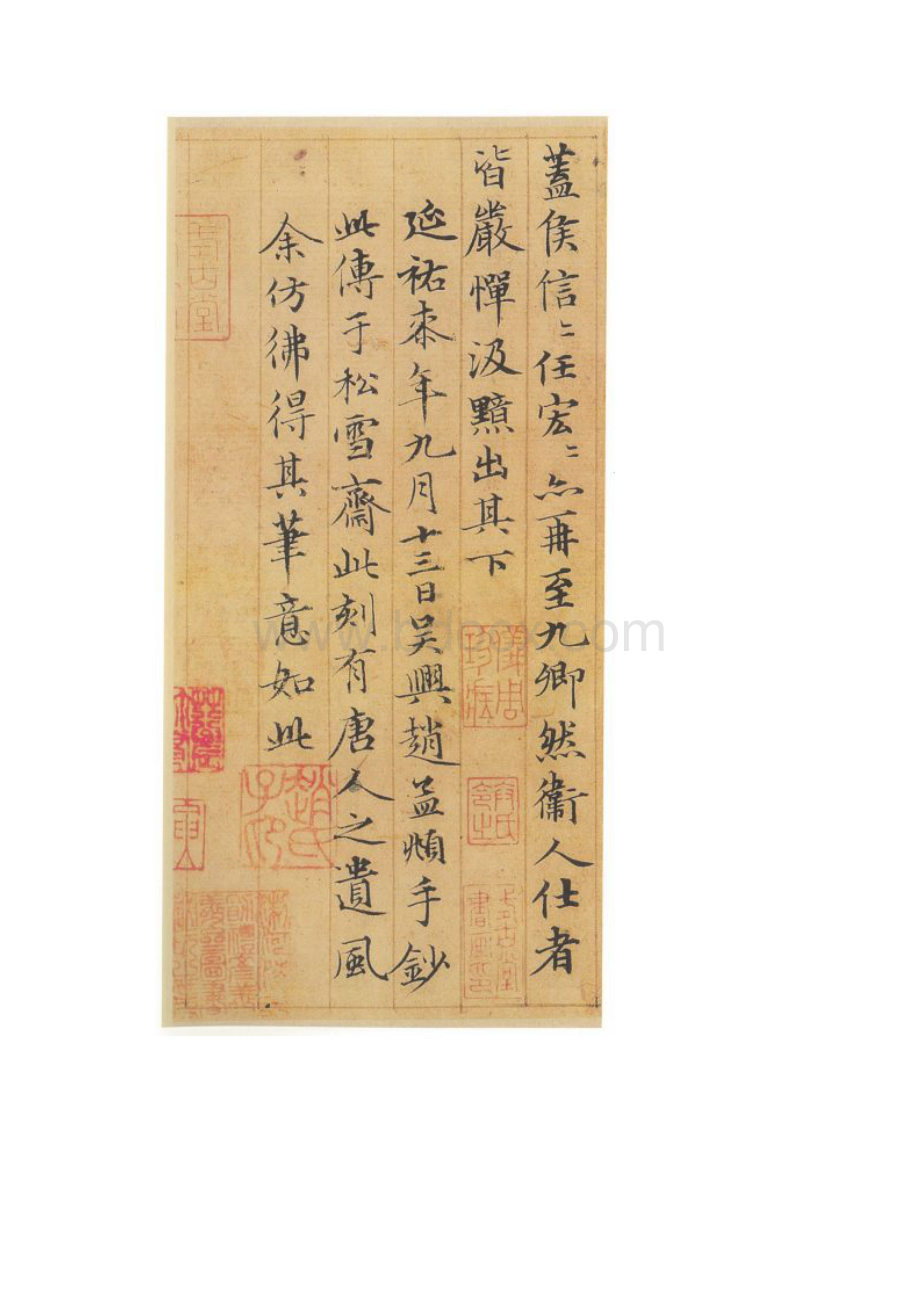 蓋侯信〻任宏〻亦再至九卿然衞人仕者
皆嚴憚汲黯出其下
延祐柒年九月十三日吴興趙孟頫手鈔
此傳于松雪齋此刻有唐人之遺風
余仿彿得其筆意如此
趙氏子昂